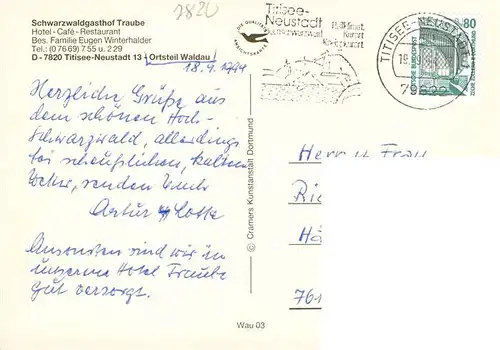 7820
Schwarzwaldgasthof Traube
Hotel - Café - Restaurant
Bes. Familie Eugen Winterhalder
Tel.: (0 76 69) 7 55 u. 2 29
D - 7820 Titisee-Neustadt 13 - Ortsteil Waldau
18.9.1994
Herzliche Grüße aus
dem schönen Hoch-
schwarzwald, allerdings
bei scheußlichem, kaltem
Wetter, senden Euch
Artur u. Lotte
Ansonsten sind wir in
unserem Hotel Traube
gut versorgt.
Titisee-
Neustadt
Hochschwarzwald
Kurort
Kneippkurort
TITISEE-NEUSTADT
79822
80
DEUTSCHE BUNDESPOST
© Cramers Kunstanstalt Dortmund
Herrn u. Frau
Wau 03